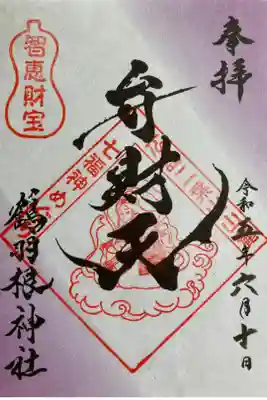 奉拝
令和五年六月十日
弁財天
七福神め
智恵財宝
鶴明根神社